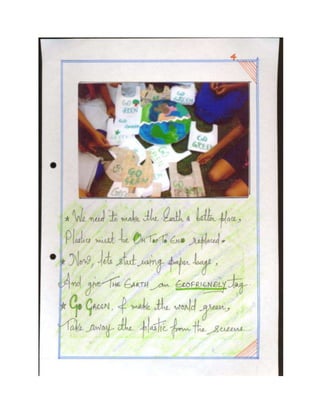 4
GO GREEN
GO GREEN
GO GREEN
GO GREEN
* We need to make the Earth a better place,
Plastics must be ON TOP TO END replaced.
* Now, lets start using paper bags,
And give THE EARTH an ECOFRIENDLY tag
* GO GREEN, & make the world green,
Take away the plastic from the screens